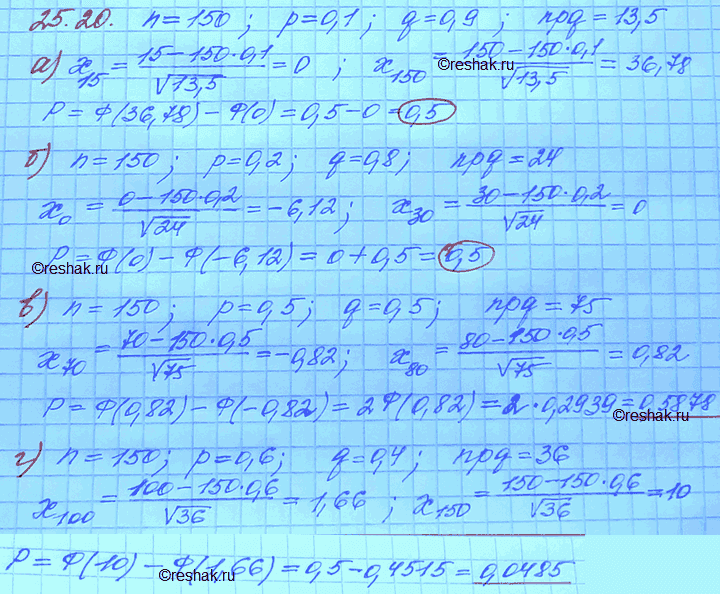 25.20. n=150; p=0,1; q=0,9; npq=13,5
а) x₁₅ = (15−150·0,1)/√13,5 = 0; x₁₅₀ = (150−150·0,1)/√13,5 = 36,78
©reshak.ru ©reshak.ru
P = Ф(36,78) − Ф(0) = 0,5 − 0 = 0,5
б) n=150; p=0,2; q=0,8; npq=24
x₀ = (0−150·0,2)/√24 = −6,12; x₃₀ = (30−150·0,2)/√24 = 0
P = Ф(0) − Ф(−6,12) = 0 + 0,5 = 0,5
©reshak.ru
в) n=150; p=0,5; q=0,5; npq=75
x₇₀ = (70−150·0,5)/√75 = −0,82; x₈₀ = (80−150·0,5)/√75 = 0,82
P = Ф(0,82) − Ф(−0,82) = 2Ф(0,82) = 2·0,2939 = 0,5878
©reshak.ru
г) n=150; p=0,6; q=0,4; npq=36
x₁₀₀ = (100−150·0,6)/√36 = 1,66; x₁₅₀ = (150−150·0,6)/√36 = 10
P = Ф(10) − Ф(1,66) = 0,5 − 0,4515 = 0,0485
©reshak.ru